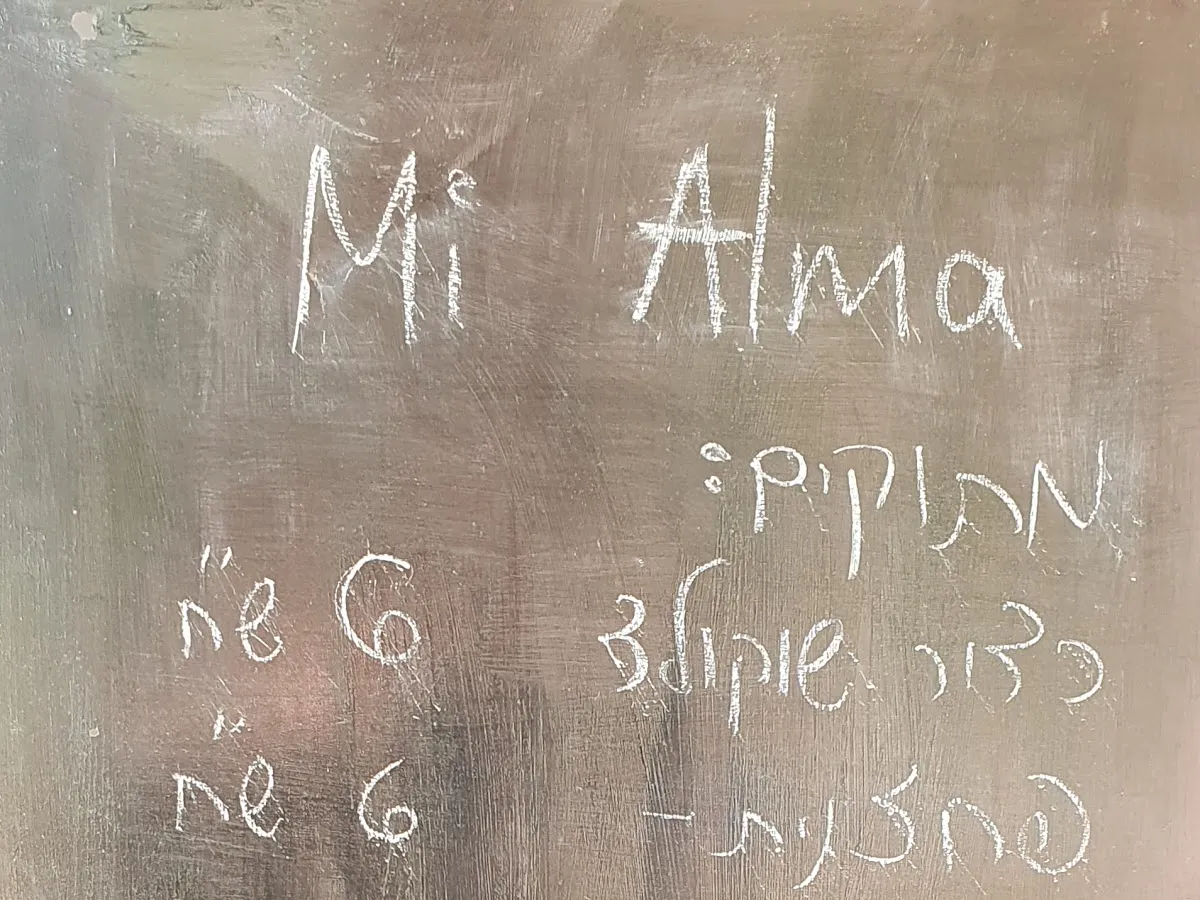 Mi Alma
מתוקים:
כדור שוקולד 6 ש"ח
פחזנית - 6 ש"ח